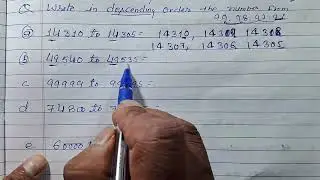 Q Write in descending order the number from
a 14310 to 14305 = 14310, 14309 14308
14307, 14306 14305
b 49540 to 49535 =
c 99999 to
d 7480 to
e 60000